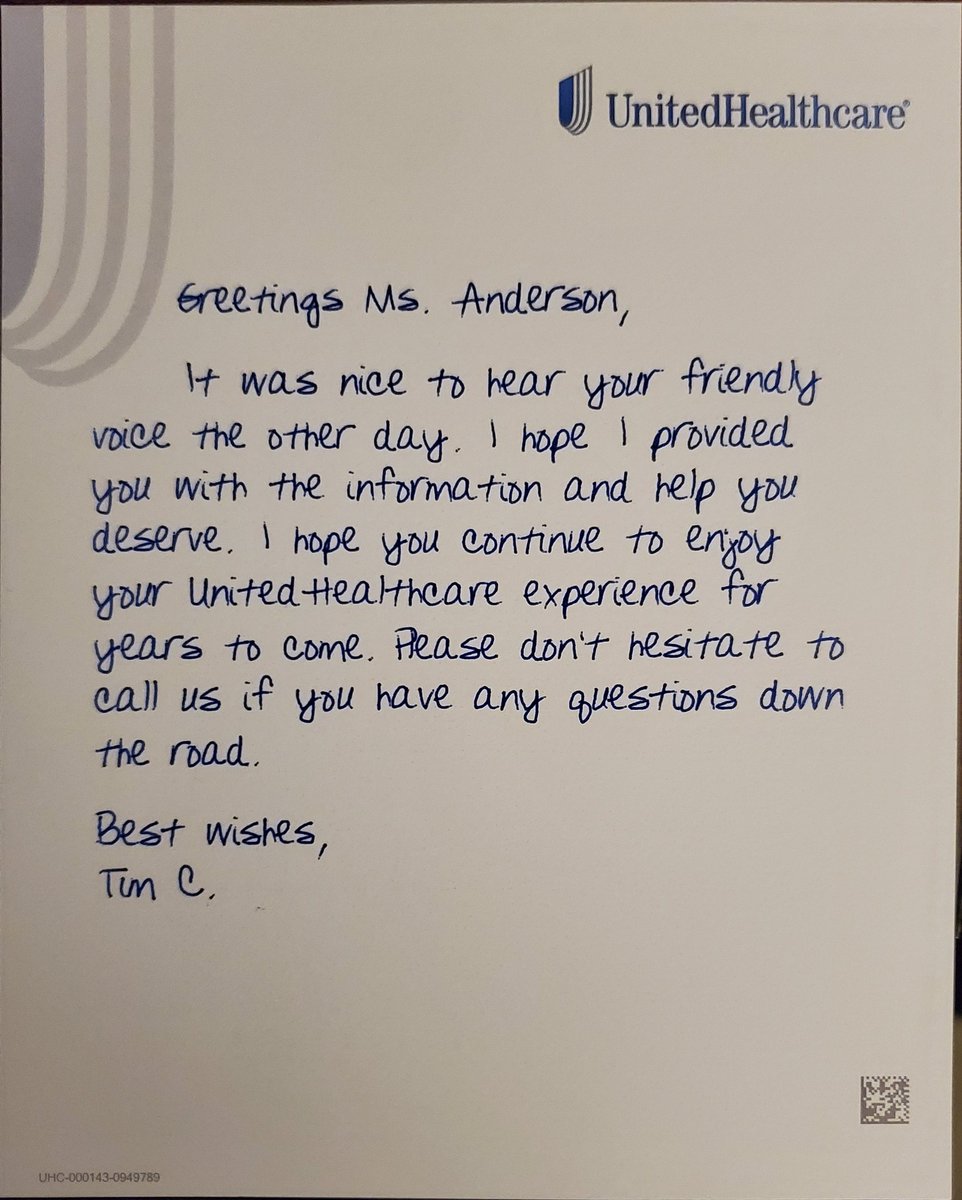 UnitedHealthcare®
Greetings Ms. Anderson,
It was nice to hear your friendly
voice the other day. I hope I provided
you with the information and help you
deserve. I hope you continue to enjoy
your UnitedHealthcare experience for
years to come. Please don't hesitate to
call us if you have any questions down
the road.
Best wishes,
Tim C.
UHC-000143-0949789